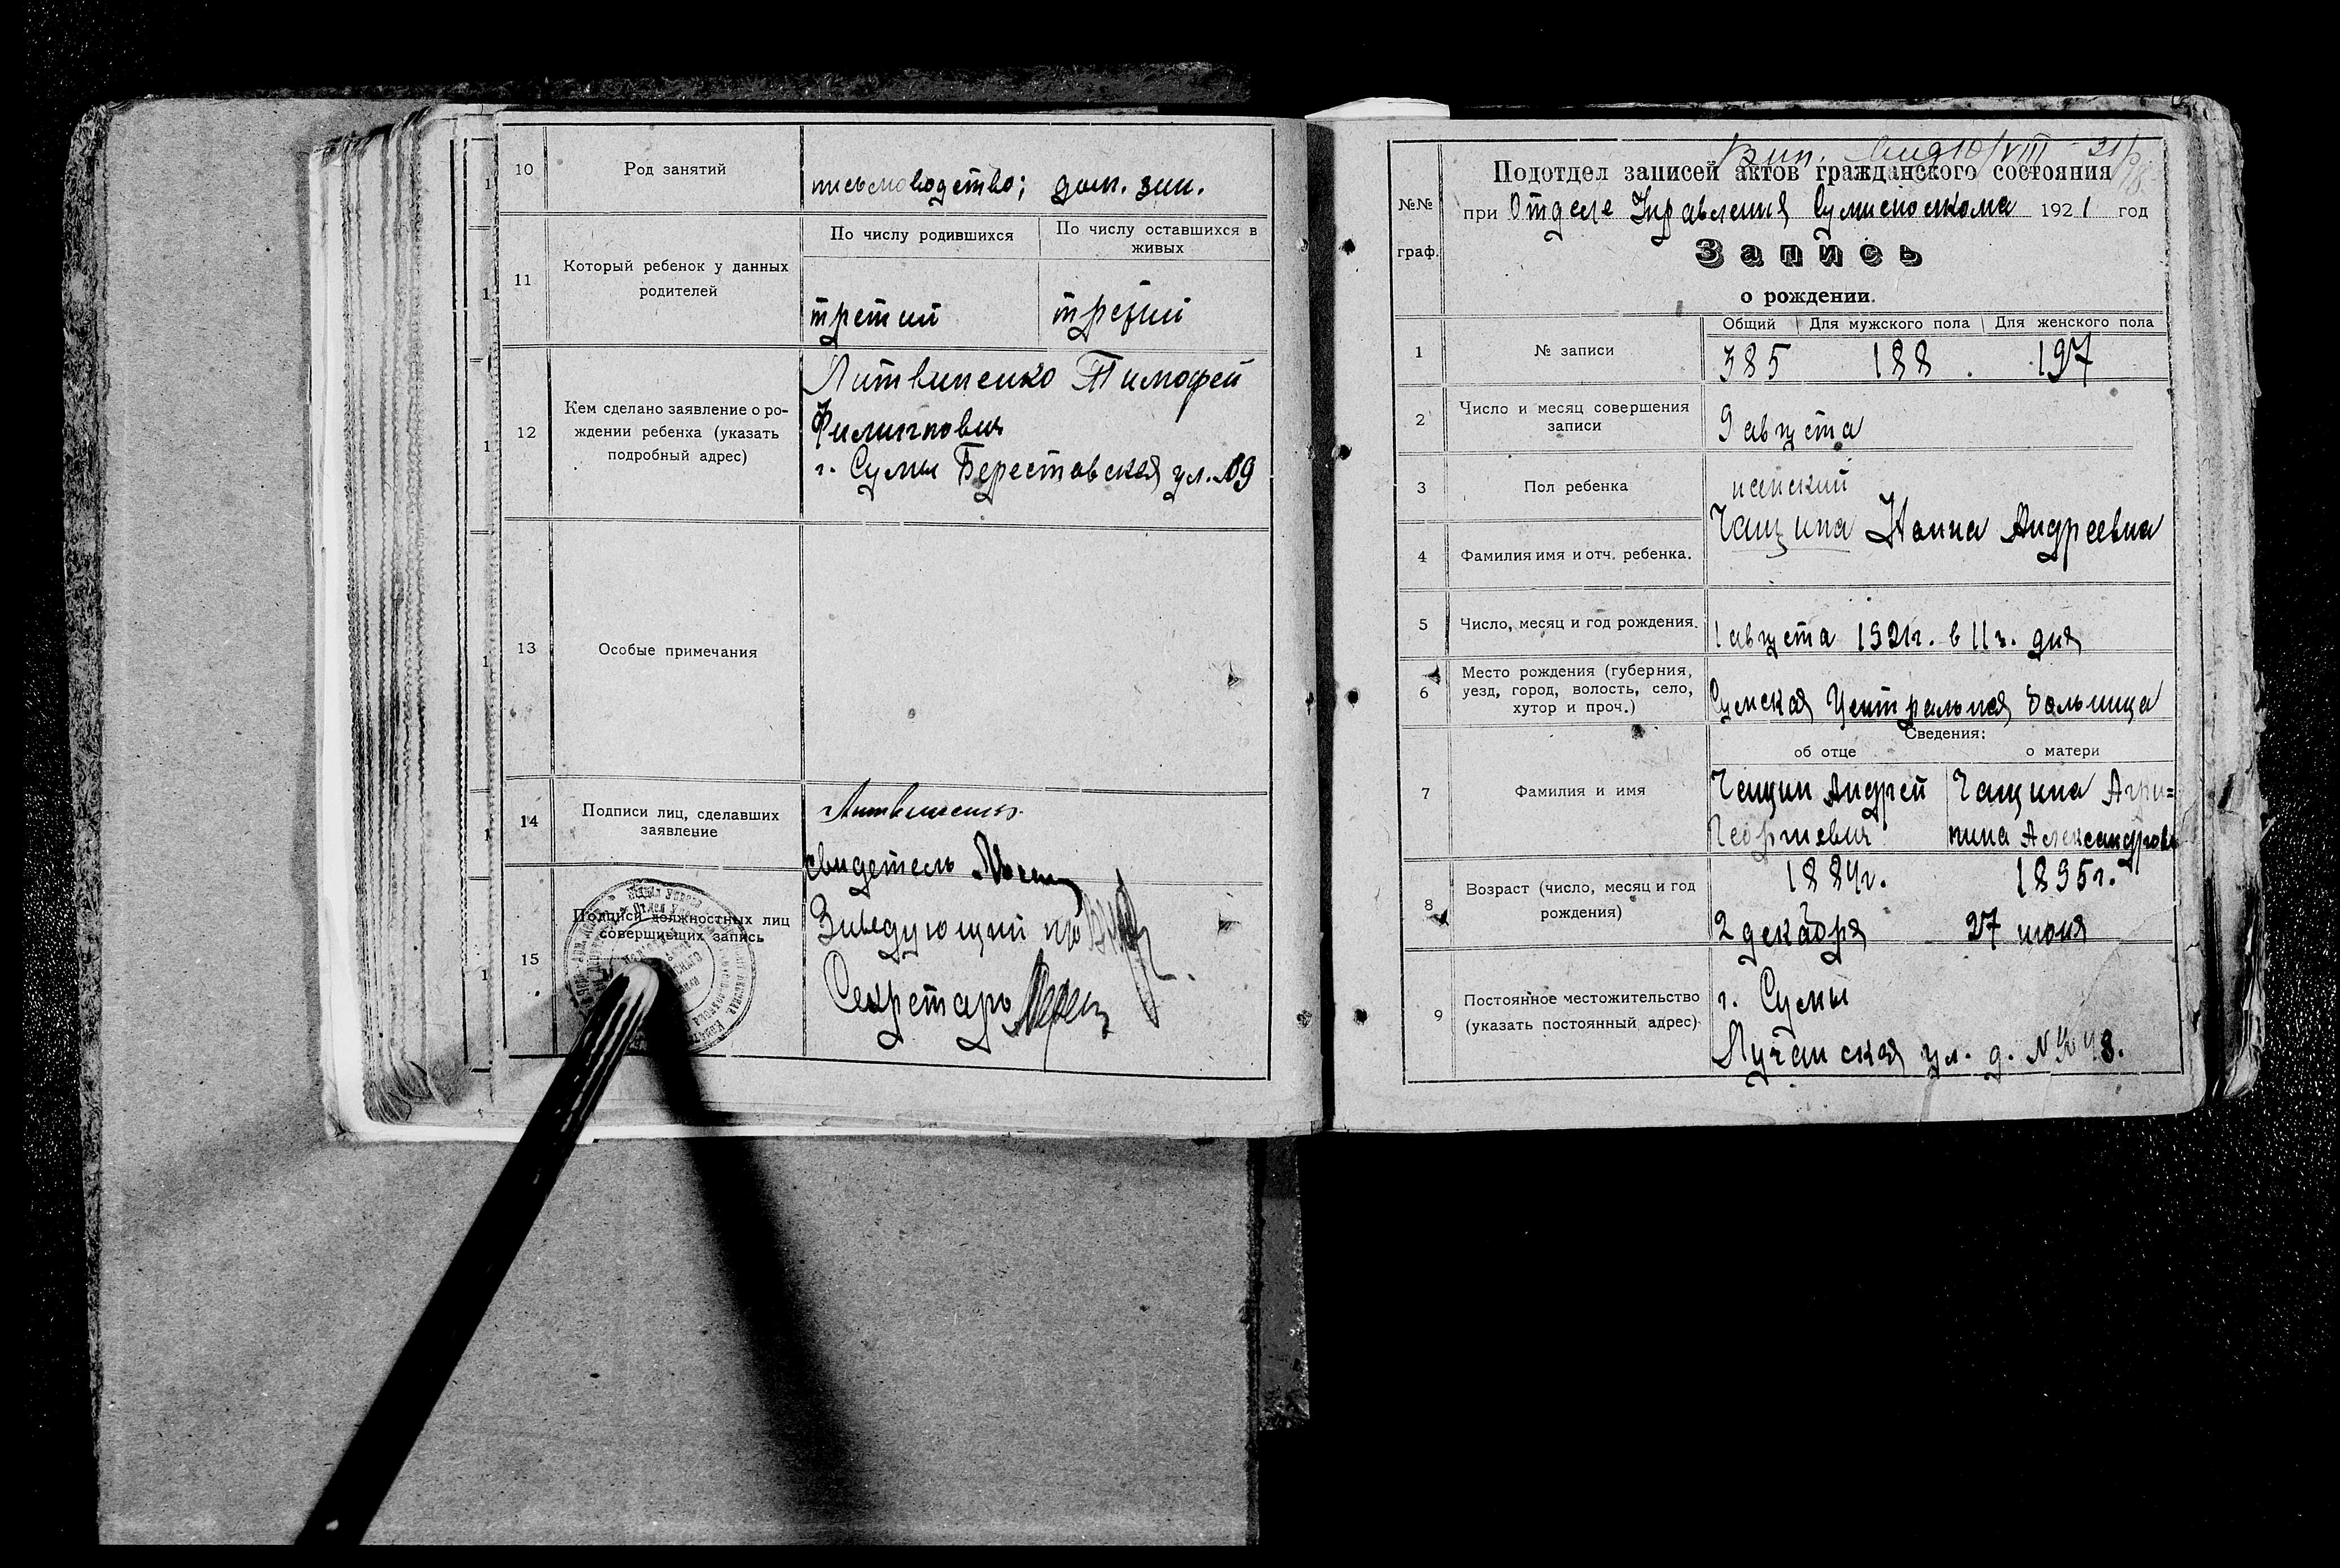 10
Род занятий
письмоводство; дом. зан.
11
Который ребенок у данных
родителей
По числу родившихся
По числу оставшихся в
живых
третий
третий
12
Кем сделано заявление о ро-
ждении ребенка (указать
подробный адрес)
Литвиненко Тимофей
Филиппович
г. Сумы Берестовская ул. №9
13
Особые примечания
14
Подписи лиц, сделавших
заявление
Литвиненко
свидетель
15
Подписи должностных лиц
совершивших запись
Заведующий п/о
Секретарь
№№
граф.
Подотдел записей актов гражданского состояния
при Отделе Управления Сумисполкома 1921 год
Запись
о рождении.
1
№ записи
Общий
Для мужского пола
Для женского пола
385
188
197
2
Число и месяц совершения
записи
9 августа
3
Пол ребенка
женский
4
Фамилия имя и отч. ребенка.
Чащина Нонна Андреевна
5
Число, месяц и год рождения.
1 августа 1921г. в 11 ч. дня
6
Место рождения (губерния,
уезд, город, волость, село,
хутор и проч.)
Сумская Центральная больница
Сведения:
об отце
о матери
7
Фамилия и имя
Чащин Андрей
Георгиевич
Чащина Агри=
пина Александровн
8
Возраст (число, месяц и год
рождения)
1884г.
2 декабря
1895г.
27 июня
9
Постоянное местожительство
(указать постоянный адрес)
г. Сумы
Лучанская ул. д. № 48.